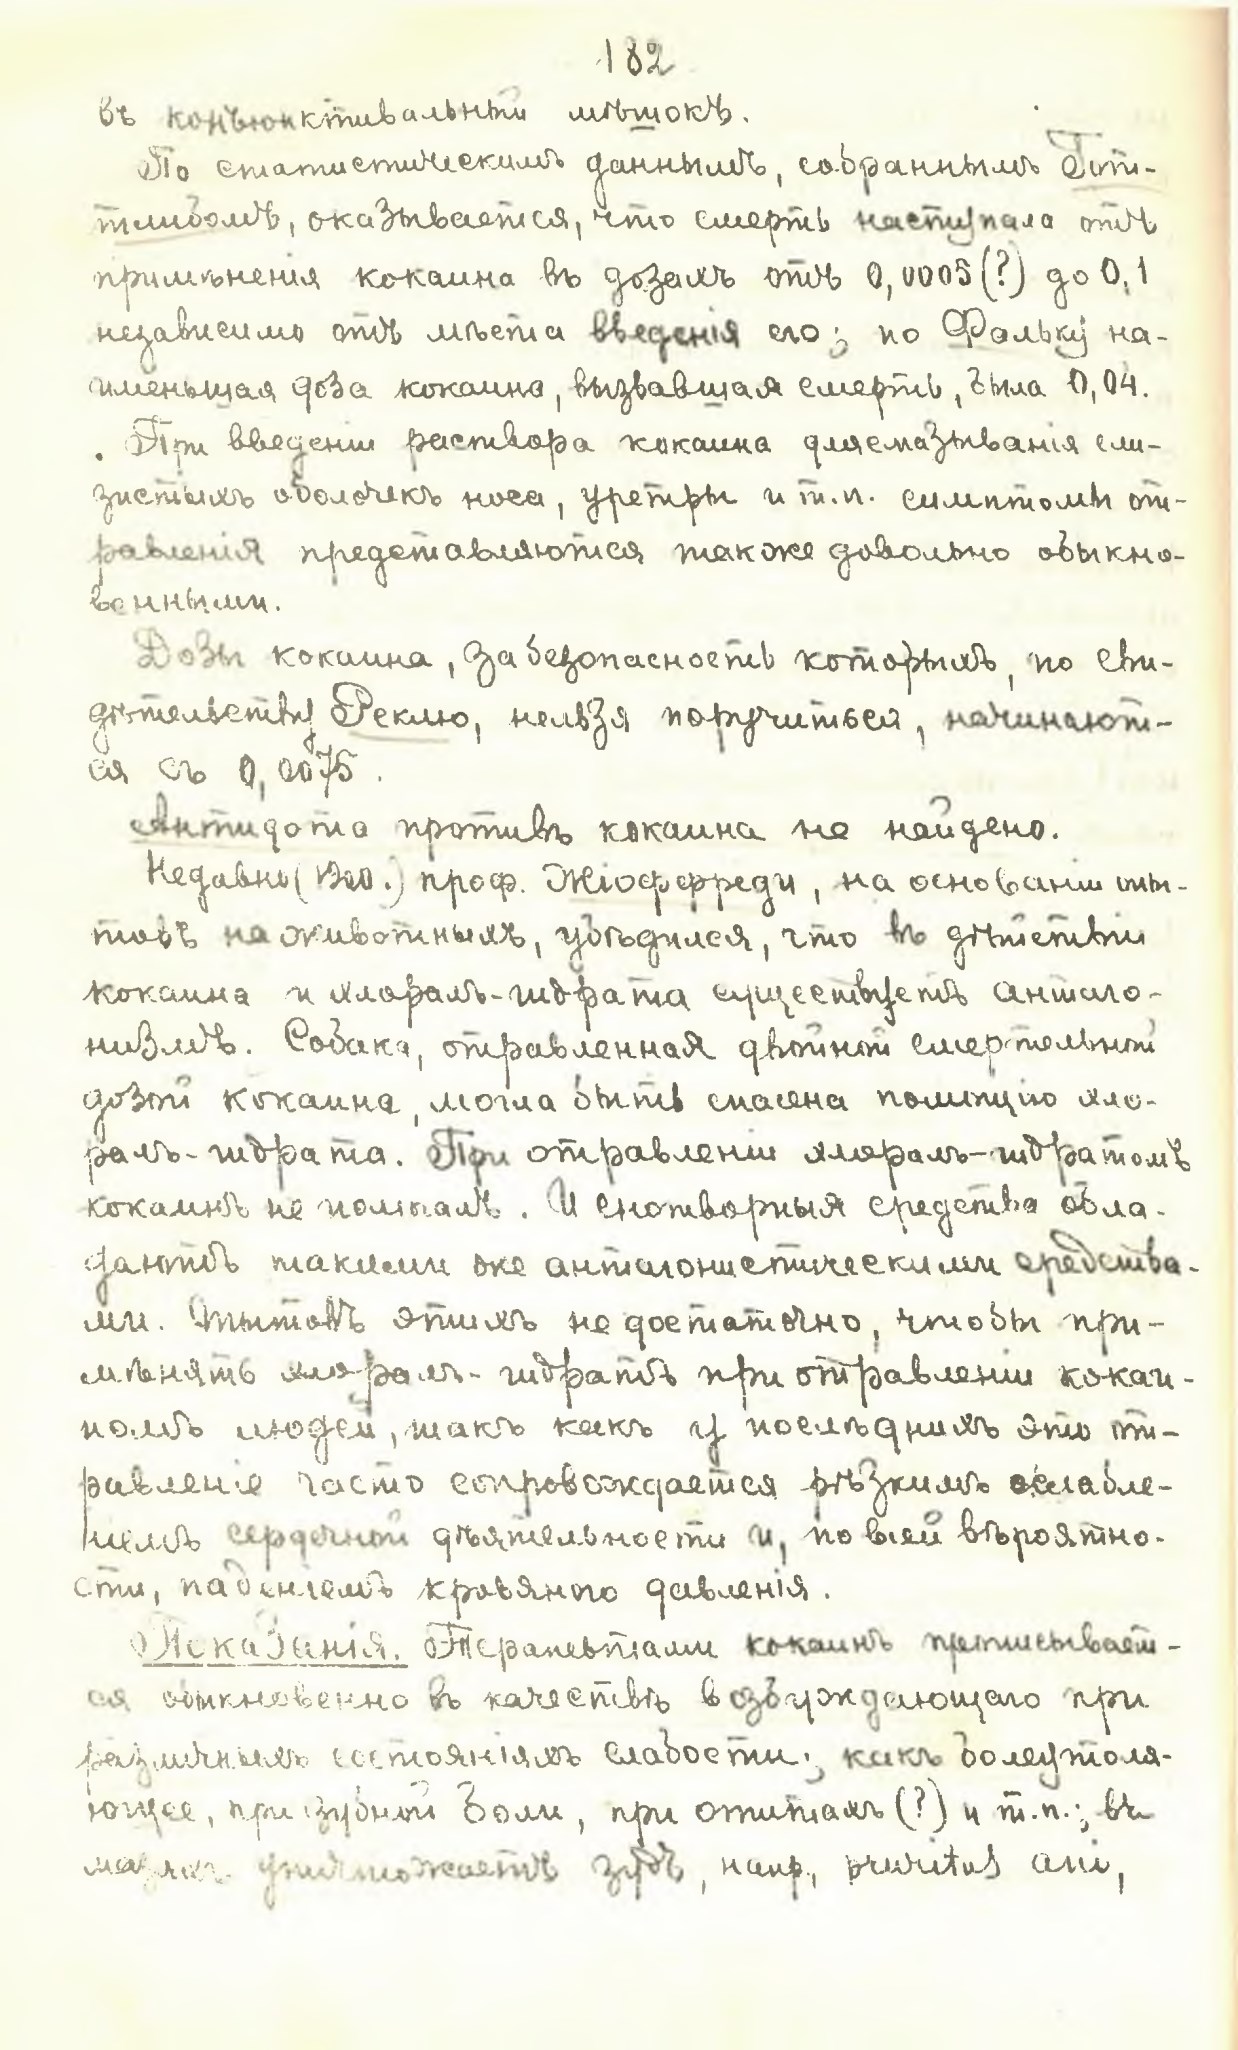 182
въ конъюнктивальный мѣшокъ.
По статистическимъ даннымъ, собраннымъ Гот-
тлибомъ, оказывается, что смерть наступала отъ
примѣненія кокаина въ дозахъ отъ 0,0005(?) до 0,1
независимо отъ мѣста введенія его; по Фальку на-
именьшая доза кокаина, вызвавшая смерть, была 0,04.
При введеніи раствора кокаина для смазыванія сли-
зистыхъ оболочекъ носа, уретры и т.п. симптомы от-
равленія представляются также довольно обыкно-
венными.
Дозы кокаина, за безопасность которыхъ, по сви-
дѣтельству Реклю, нельзя поручиться, начинают-
ся съ 0,0075.
Антидота противъ кокаина не найдено.
Недавно проф. Жіоффреди, на основаніи опы-
товъ на животныхъ, убѣдился, что въ дѣйствіи
кокаина и хлоралъ-гидрата существуетъ антаго-
низмъ. Собака, отравленная двойной смертельной
дозой кокаина, могла быть спасена помощью хло-
ралъ-гидрата. При отравленіи хлоралъ-гидратомъ
кокаинъ не помогалъ. И снотворныя средства обла-
даютъ такими же антагонистическими средства-
ми. Опытовъ этихъ недостаточно, чтобы при-
мѣнять хлоралъ-гидратъ при отравленіи кокаи-
номъ людей, такъ какъ у послѣднихъ это от-
равленіе часто сопровождается рѣзкимъ ослабле-
ніемъ сердечной дѣятельности и, по всей вѣроятно-
сти, паденіемъ кровяного давленія.
Показанія. Терапевтами кокаинъ прописывает-
ся обыкновенно въ качествѣ возбуждающаго при
различныхъ состояніяхъ слабости; какъ болеутоля-
ющее, при зубной боли, при отитахъ (?) и т.п.; въ
мазяхъ уничтожаетъ зудъ, напр., pruritus ani,